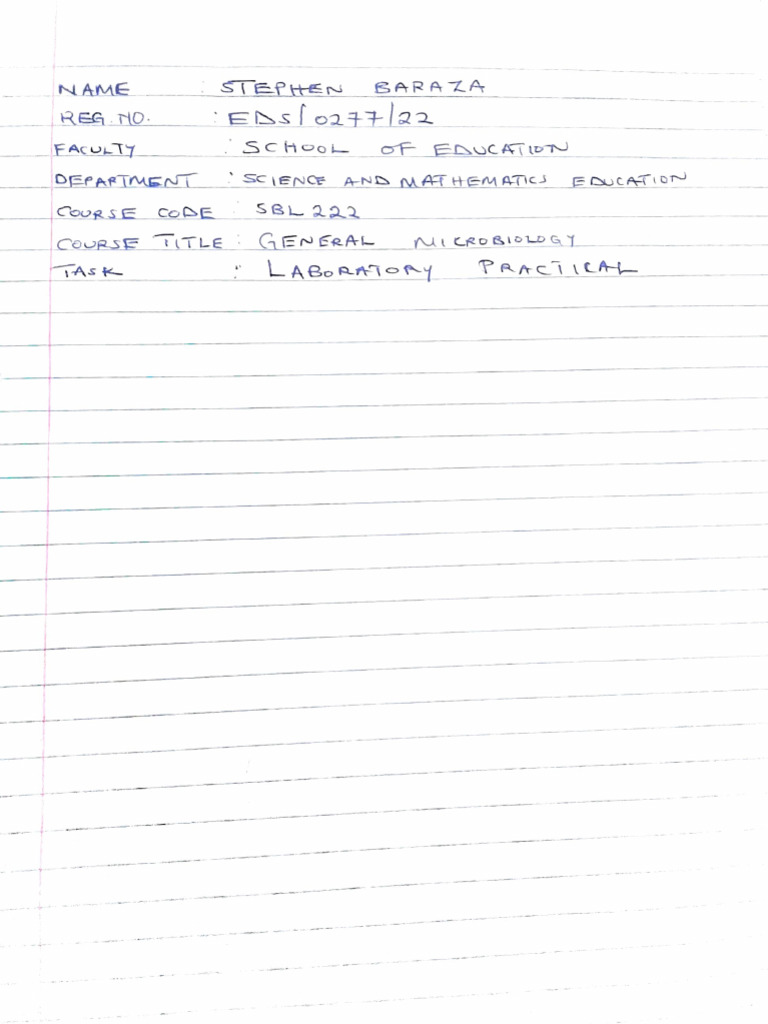 NAME : STEPHEN BARAZA
REG. NO. : EDS/0277/22
FACULTY : SCHOOL OF EDUCATION
DEPARTMENT : SCIENCE AND MATHEMATICS EDUCATION
COURSE CODE SBL 222
COURSE TITLE : GENERAL MICROBIOLOGY
TASK : LABORATORY PRACTICAL